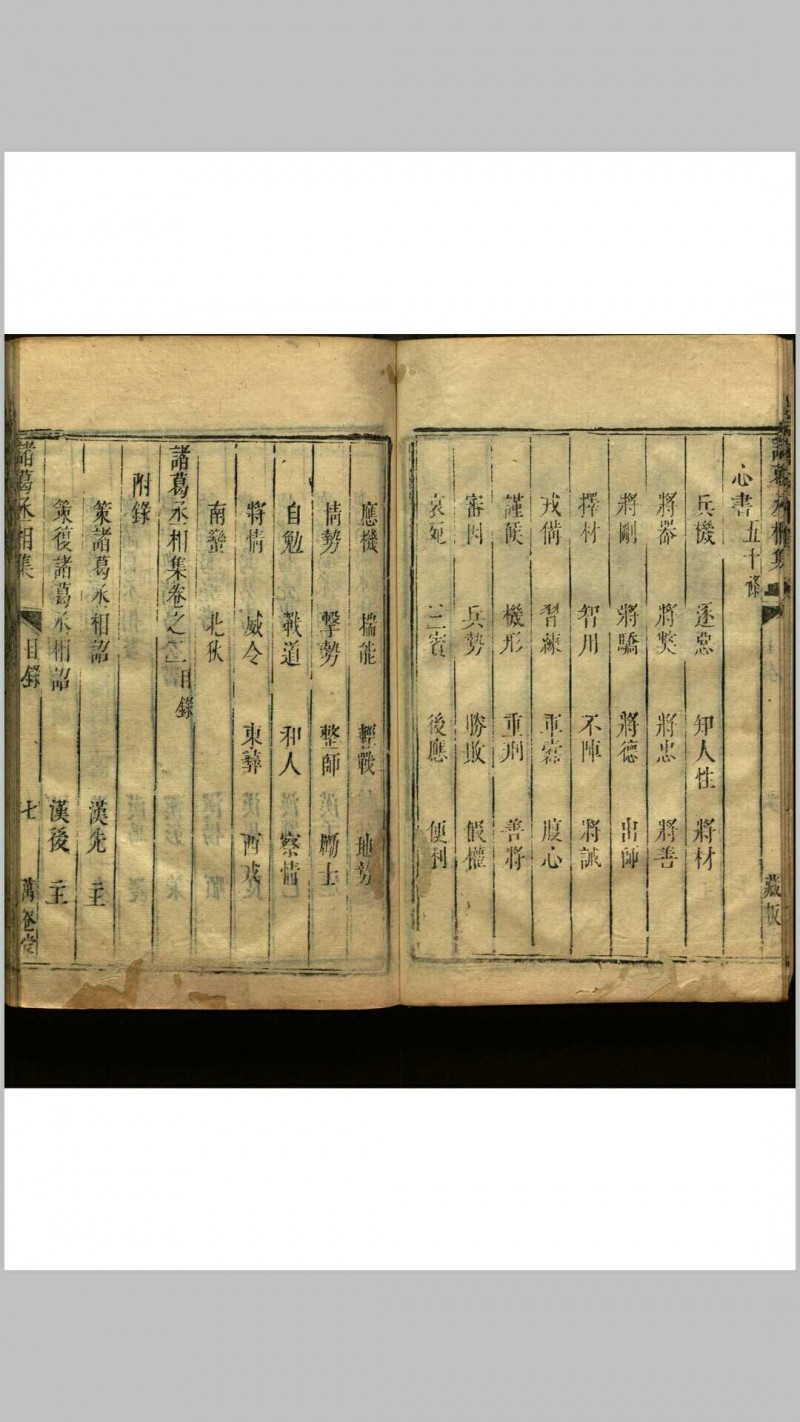 諸葛丞相集
藏板
心書五十條
兵機 逐惡 知人性 將材
將器 將獘 將忠 將善
將剛 將驕 將德 出師
擇材 智用 不陣 將誡
戎備 習練 軍蠹 腹心
謹候 機形 重刑 善將
審因 兵勢 勝敗 假權
哀死 三賓 後應 便利
應機 揣能 輕戰 地勢
情勢 擊勢 整師 勵士
自勉 戰道 和人 察情
將情 威令 東彝 西戎
南蠻 北狄
諸葛丞相集卷之二目錄
附錄
策諸葛丞相詔 漢先主
策復諸葛丞相詔 漢後主
諸葛丞相集 目錄 七 萬卷堂